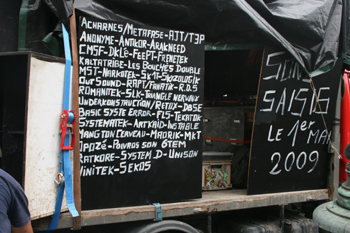 ACHARNES/METAFASE-AJT/TJP
ANONYME-ANTIKOR-ARAKNEED
CMSF-DKLé-FEEPT-FRENETEK
KALTATRIBE-LES BOUCHES DOUBLE
MST-NARKOTEK-SKIZOLOGIK
OUT SOUND-RAPT/FANATIK-R.D.S
ROMANITEK-SLK-TRIANGLE NERVAUX
UNDERKONSTRUCTION/RETIX-DBASE
BASIC SYSTE ERROR-PLS-TEKATOK
SYSTEMATEK-ARTKAID-INSTABLE
MANGTON CERVEAU-MAORIK-MKT
OPOZé-POUROS SON 6TEM
RATKORE-SYSTEM D-UNISON
INITEK-SEKOS
SONS
SAISIS
LE 1er MAI
2009